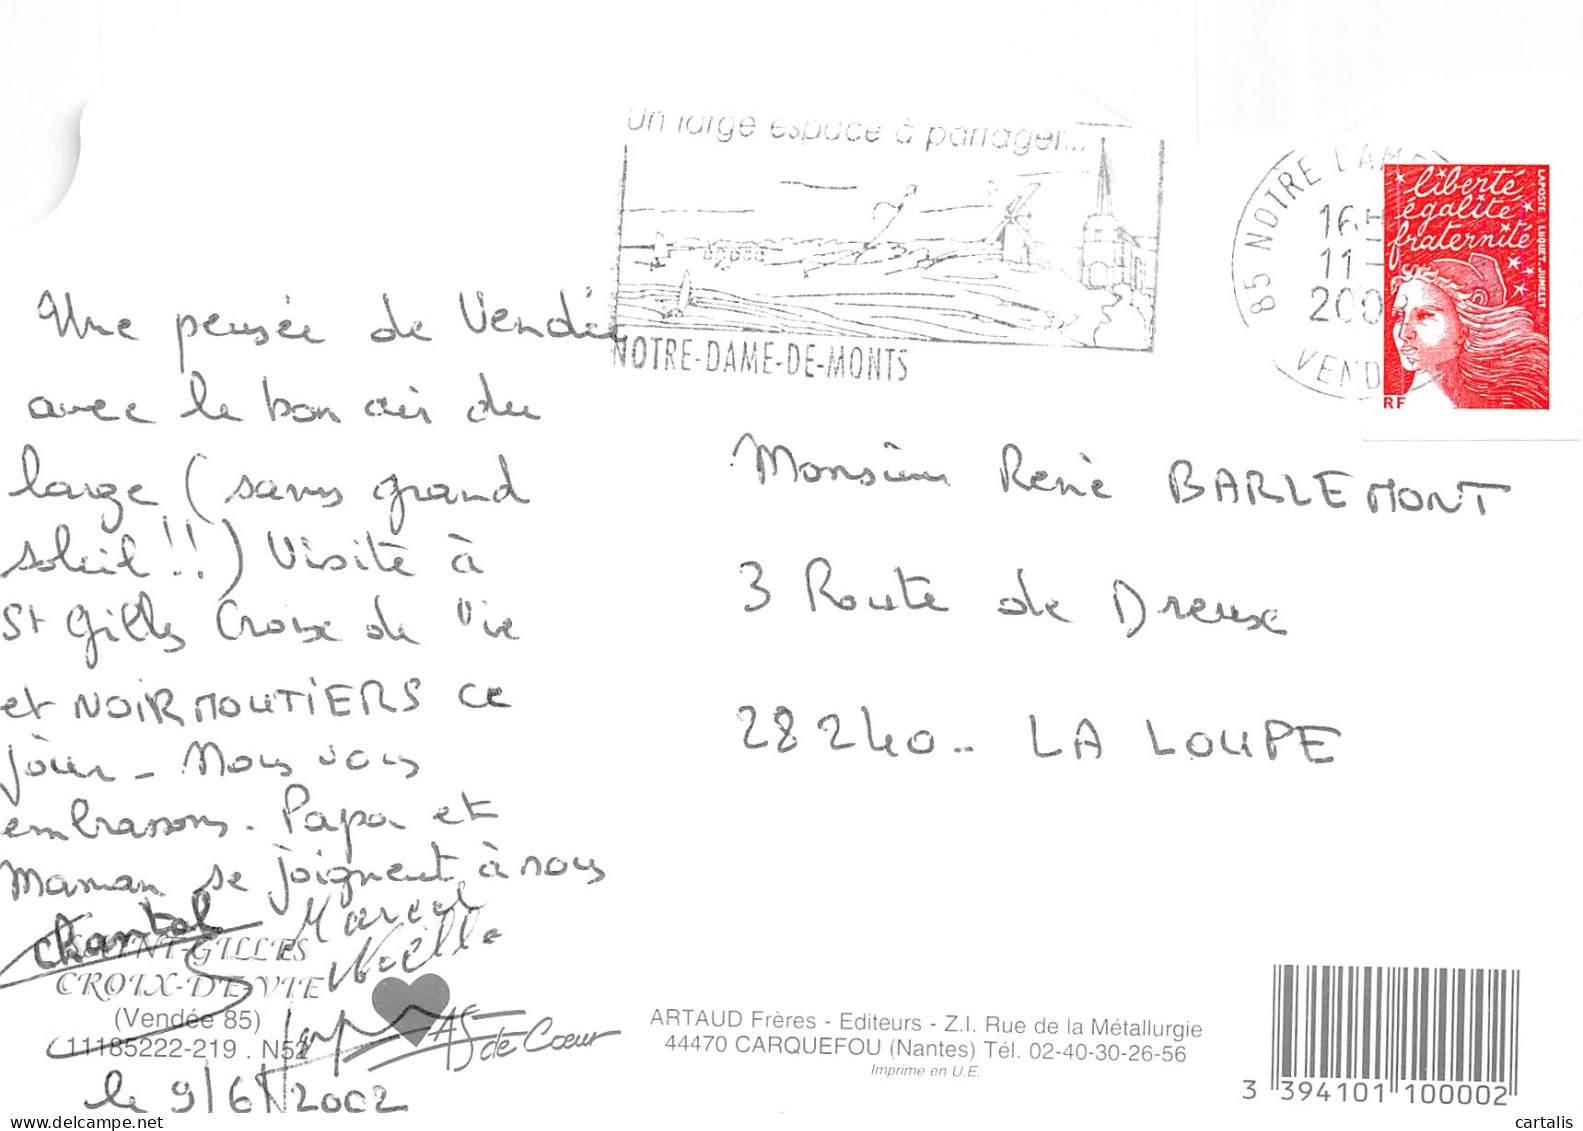 Un large espace à partager...
NOTRE-DAME-DE-MONTS
85 NOTRE DAME
16H
11
200
VEND
liberté
égalité
fraternité
LA POSTE
LUQUET. JUMELET
RF
Une pensée de Vendée
avec le bon air du
large (sans grand
soleil!!) Visite à
St Gilles Croix de Vie
et NOIRMOUTIERS ce
jour - Nous vous
embrassons. Papa et
Maman se joignent à nous
Chantal Marcel
Noëlle
Monsieur René BARLEMONT
3 Route de Dreux
28240 - LA LOUPE
SAINT-GILLES
CROIX-DE-VIE
(Vendée 85)
11185222-219 . N52
AS de Cœur
le 9/6/2002
ARTAUD Frères - Editeurs - Z.I. Rue de la Métallurgie
44470 CARQUEFOU (Nantes) Tél. 02-40-30-26-56
Imprimé en U.E.
3 394101 100002
cartalis